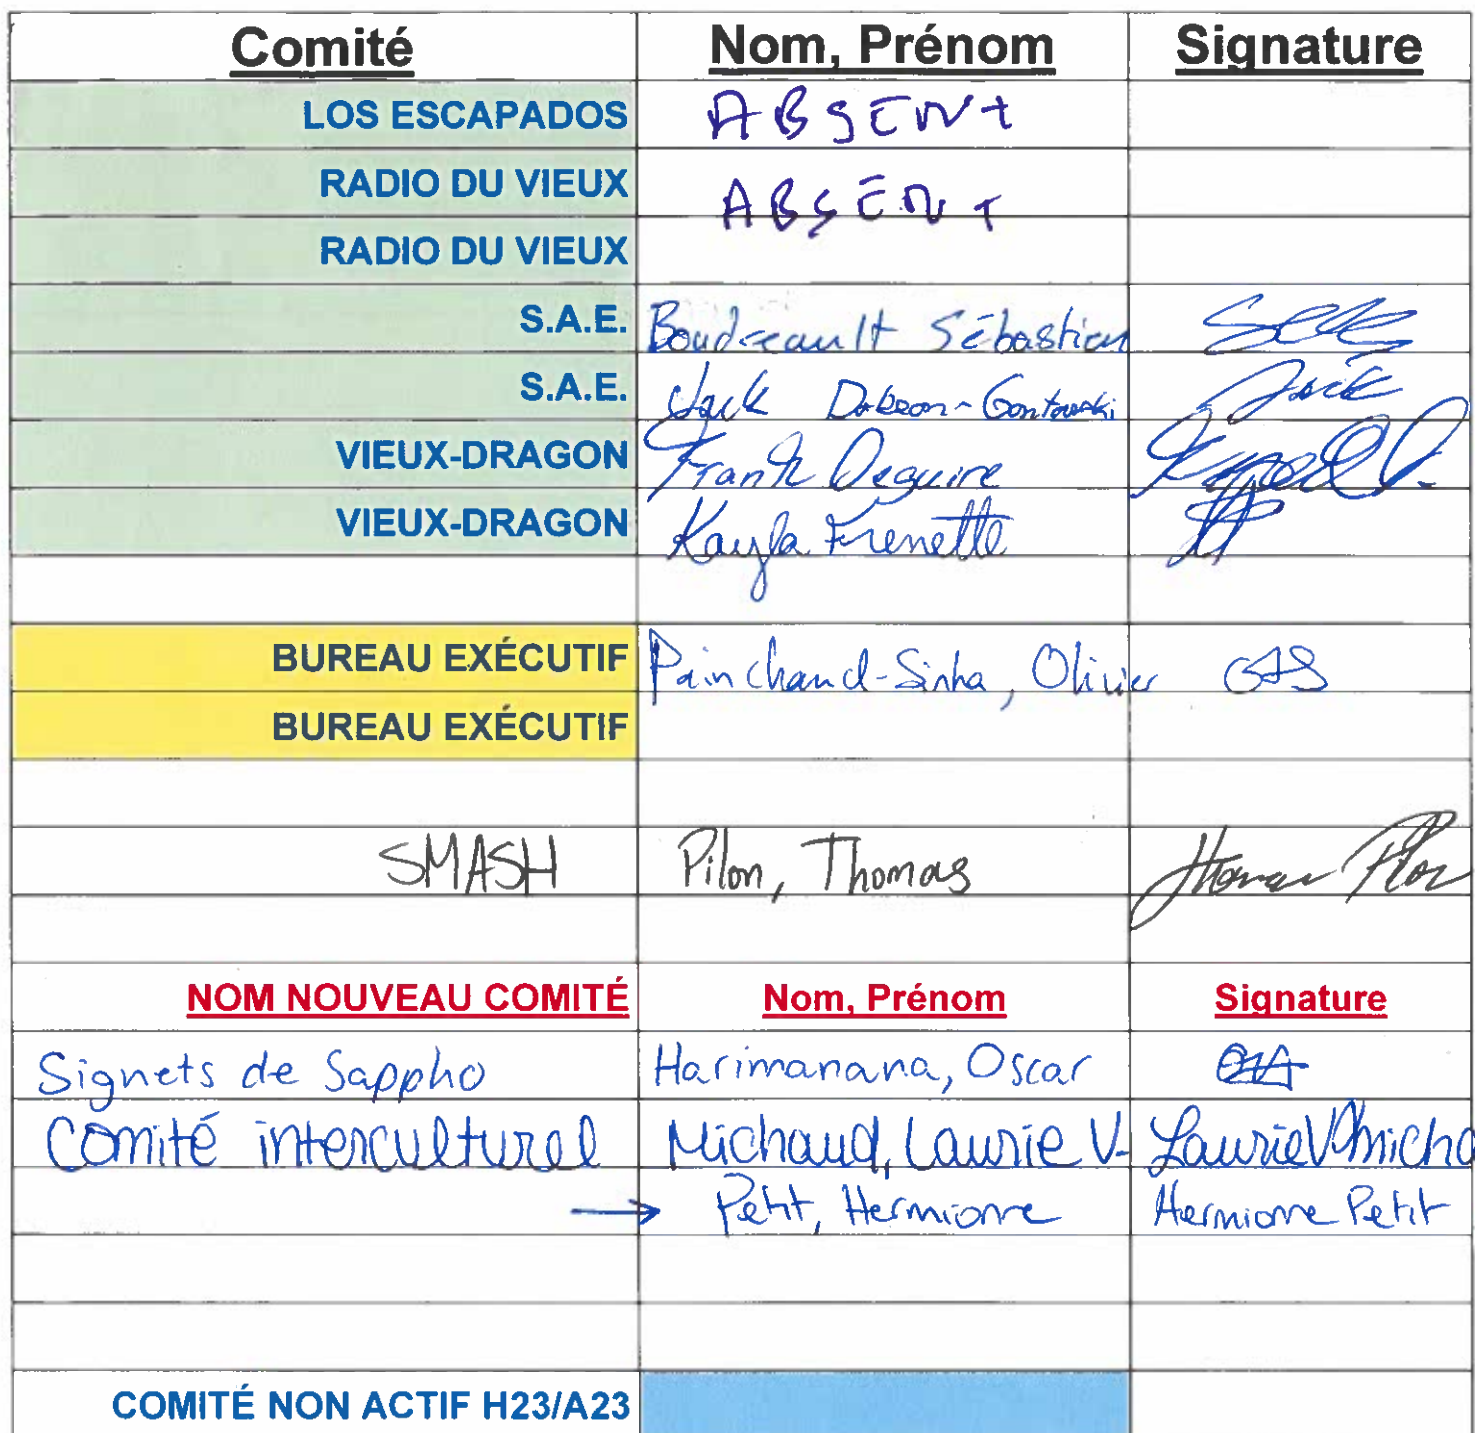 Comité Nom, Prénom Signature
LOS ESCAPADOS ABSENt
RADIO DU VIEUX ABSENT
RADIO DU VIEUX
S.A.E. Boudreault Sébastien
S.A.E. Jack
VIEUX-DRAGON Frank Deguire
VIEUX-DRAGON Kayla Frenette
BUREAU EXÉCUTIF Painchaud-Sinha, Olivier OPS
BUREAU EXÉCUTIF
SMASH Pilon, Thomas Thomas Pilon
NOM NOUVEAU COMITÉ Nom, Prénom Signature
Signets de Sappho Harimanana, Oscar
Comité interculturel Michaud, Laurie V- Laurie V Micha
→ Petit, Hermione Hermione Petit
COMITÉ NON ACTIF H23/A23